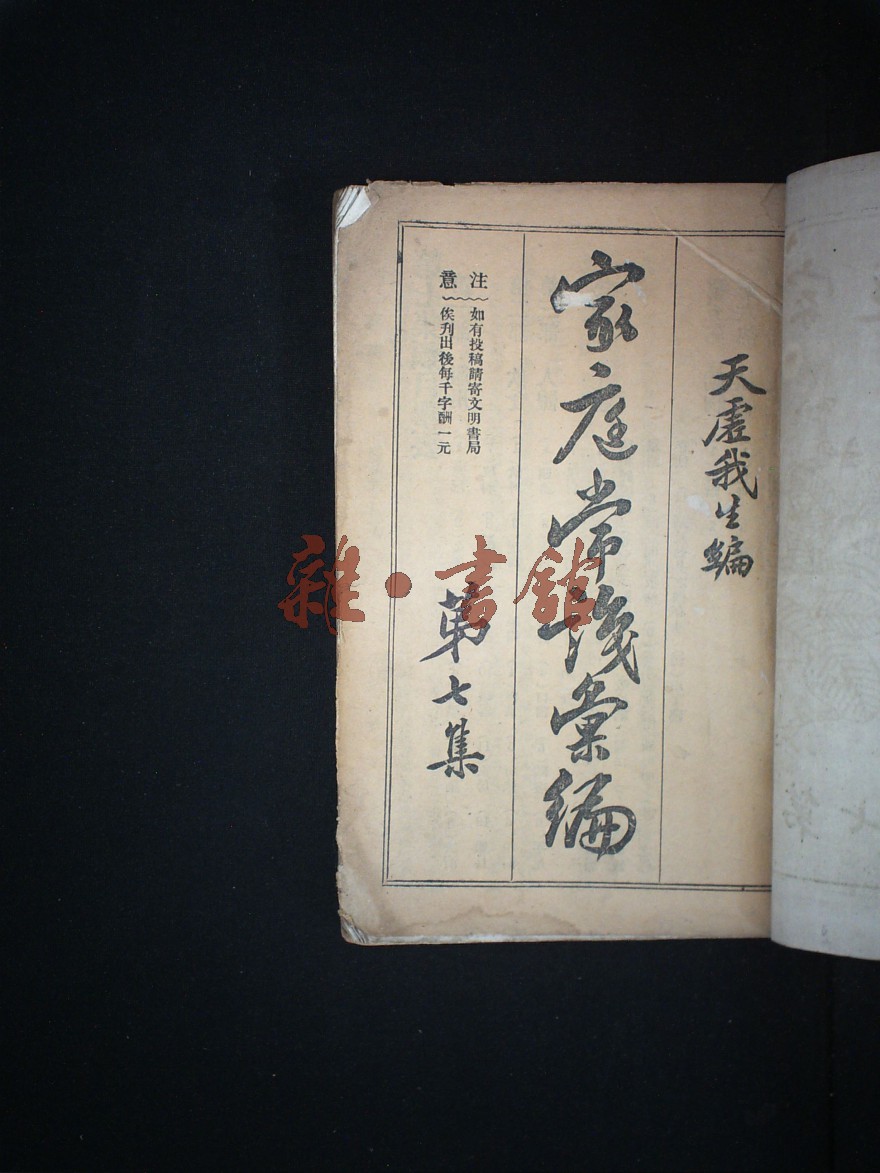 天虛我生編
家庭常識彙編
注意
如有投稿請寄文明書局
俟刋出後每千字酬一元
第七集
雜·書館